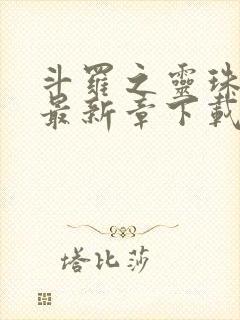 斗羅之靈珠
最新章下載
塔比莎